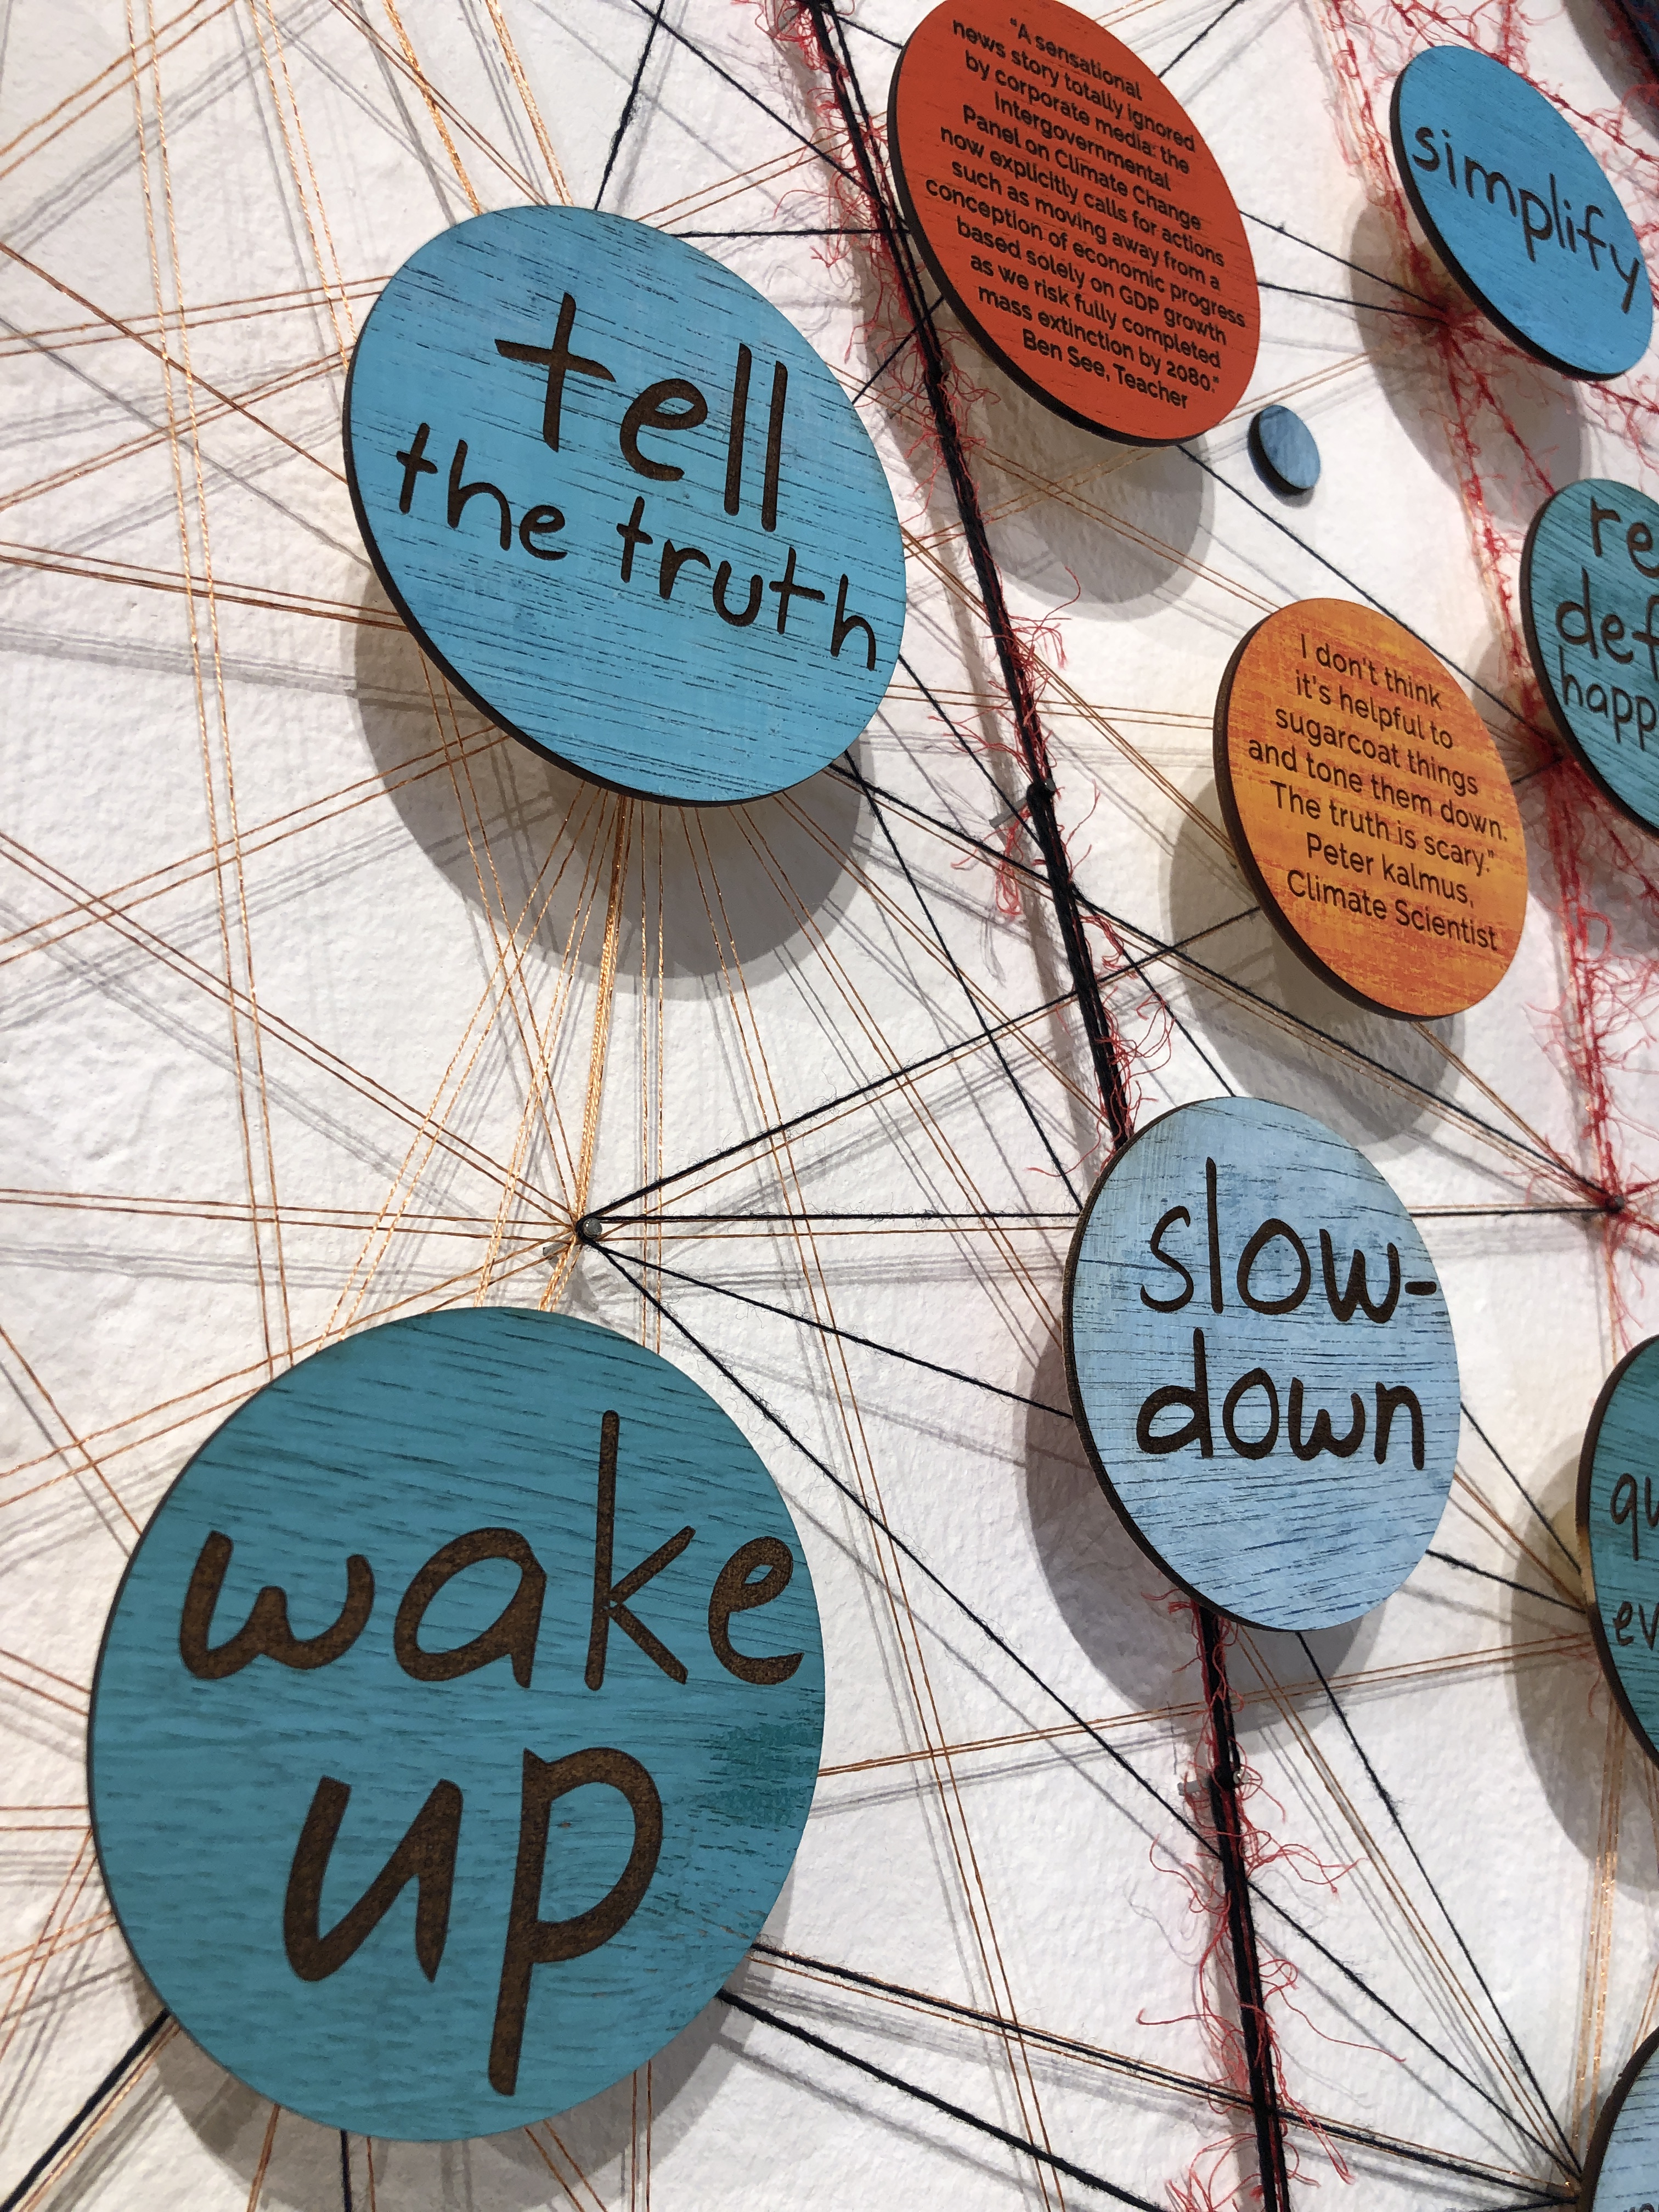 "A sensational
news story totally ignored
by corporate media: the
Intergovernmental
Panel on Climate Change
now explicitly calls for actions
such as moving away from a
conception of economic progress
based solely on GDP growth
as we risk fully completed
mass extinction by 2080."
Ben See, Teacher
simplify
tell
the truth
re
def
happ
I don't think
it's helpful to
sugarcoat things
and tone them down.
The truth is scary."
Peter kalmus,
Climate Scientist
slow-
down
qu
ev
wake
up